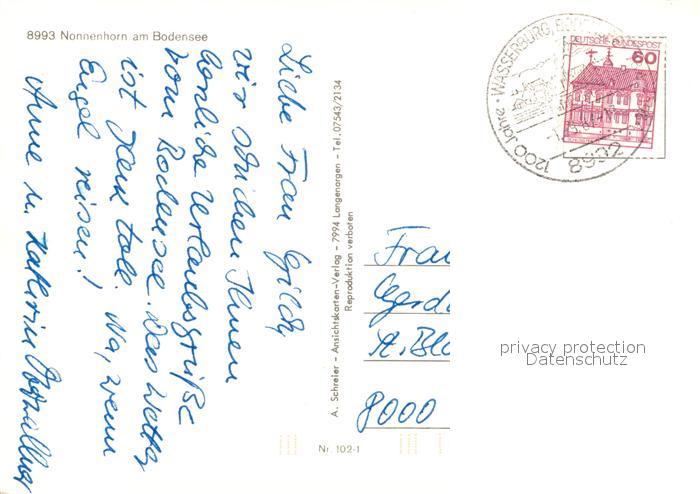 8993 Nonnenhorn am Bodensee
Liebe Frau Gilch,
wir schicken Ihnen
herzliche Urlaubsgrüße
vom Bodensee. Das Wetter
ist sehr toll. Na, wenn
Engel reisen!
Anne u. Katherin
A. Schreier – Ansichtskarten-Verlag – 7994 Langenargen – Tel. 07543/2134
Reproduktion verboten
Nr. 102-1
1200 Jahre · WASSERBURG,
8992
DEUTSCHE BUNDESPOST
60
Frau
Gerd
A. Blu
8000
privacy protection
Datenschutz